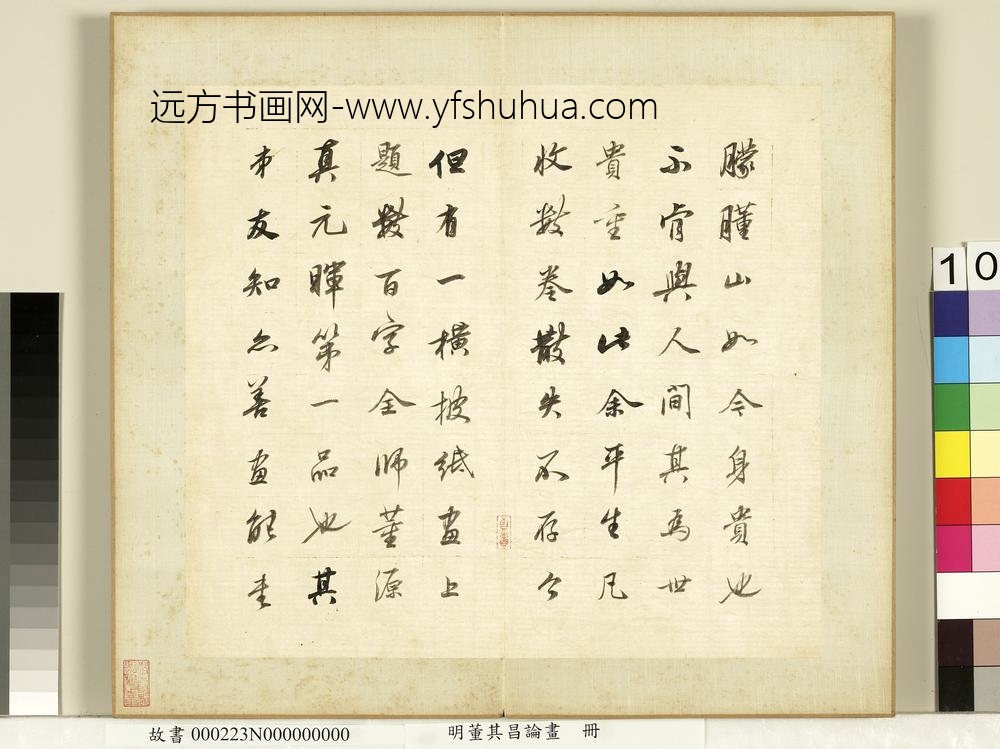 远方书画网-www.yfshuhua.com
朦朧山如今身貴也
不肯與人間其為世
貴重如此余平生凡
收數卷散失不存今
但有一橫披紙畫上
題數百字全師董源
真元暉第一品也其
弟友知亦善畫能書
故書 000223N000000000
明董其昌論畫 冊
10